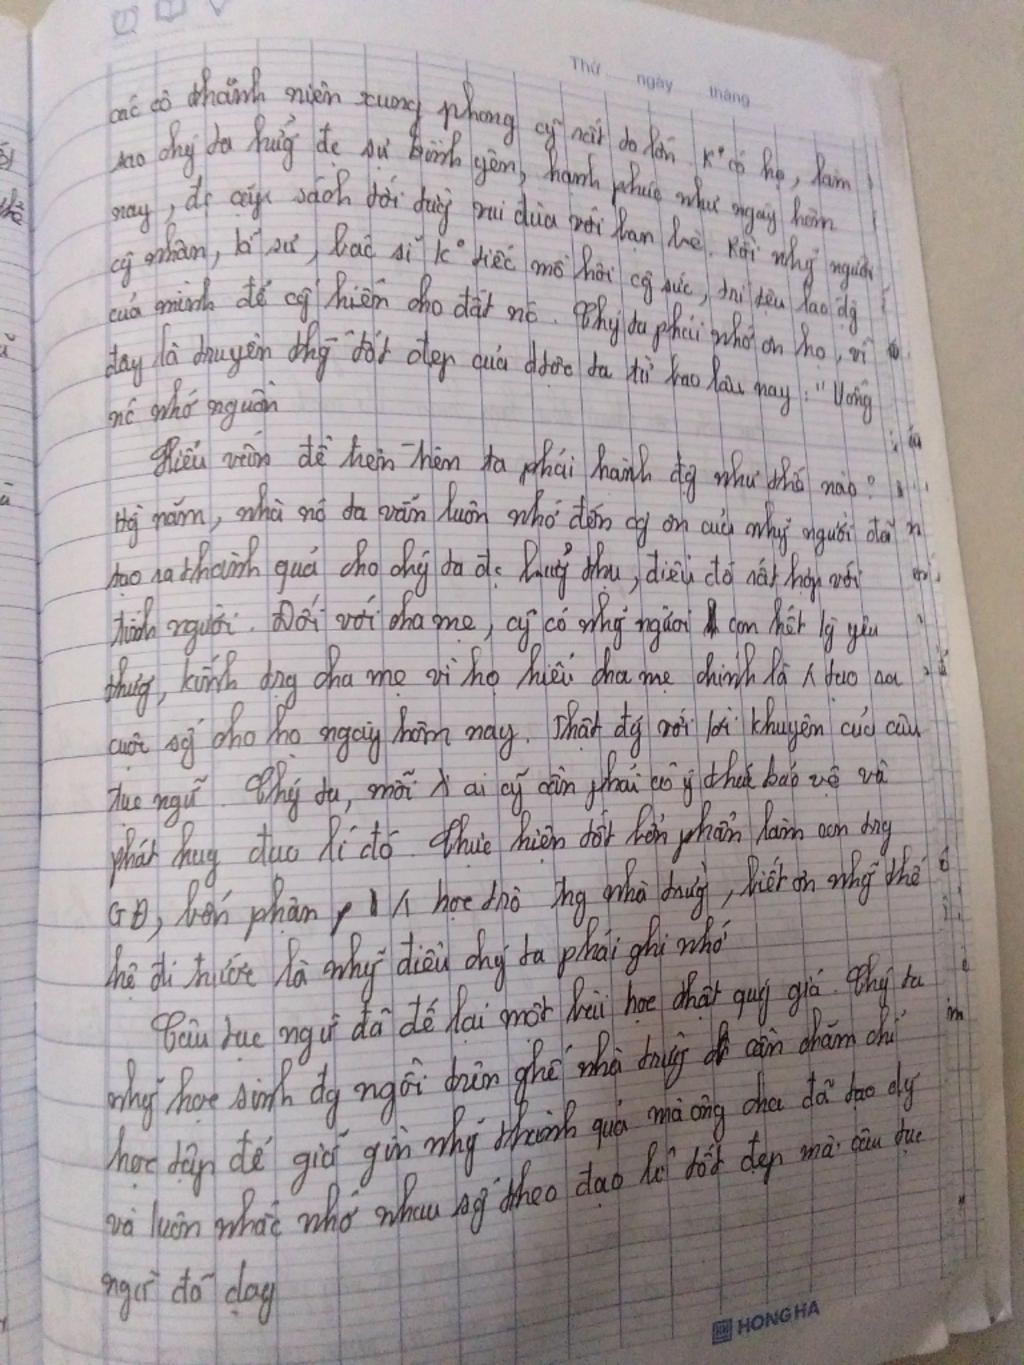 Thứ ngày tháng
các cô thanh niên xung phong cỹ rất to lớn K° có họ, làm
sao chý ta hưởg đc sự bình yên, hạnh phúc như ngày hôm
nay, đc cắp sách tới trườg vui đùa với bạn bè. Rồi nhỹ người
cg nhân, kĩ sư, bác sĩ k° tiếc mồ hôi cg sức, trí tệu lao độg
của mình để cg hiến cho đất nc. Chýg ta phải nhớ ơn họ, vì
đay là truyền thg tốt đẹp của dtộc ta từ bao lâu nay: "Uống
nc nhớ nguồn
Hiểu vấn đề trên nên ta phải hành độg như thế nào?
Hg năm, nhà nc ta vẫn luôn nhớ đến cg ơn của nhỹ người đã
tạo ra thành quả cho chý ta đc hưởg thụ, điều đó rất hợp với
tình người. Đối với cha mẹ, cỹ có nhỹ người con hết lg yêu
thươg, kính trg cha mẹ vì họ hiểu cha mẹ chính là tạo ra
cuộc sg cho họ ngày hôm nay. Thật đg với lời khuyên của câu
tục ngữ. Chý ta, mỗi ai cỹ cần phải có ý thức bảo vệ và
phát huy đạo lí đó. Thực hiện tốt bổn phận làm con trg
GĐ, bổn phận học trò trg nhà trườg, biết ơn nhỹ thế
hệ đi trước là nhỹ điều chý ta phải ghi nhớ
Câu tục ngữ đã để lại một bài học thật quý giá. Chý ta
nhỹ học sinh đg ngồi trên ghế nhà trườg cần chăm chỉ
học tập để giữ gìn nhỹ thành quả mà ông cha đã tạo dựg
và luôn nhắc nhở nhau sg theo đạo lí tốt đẹp mà câu tục
ngữ đã dạy
HONG HA